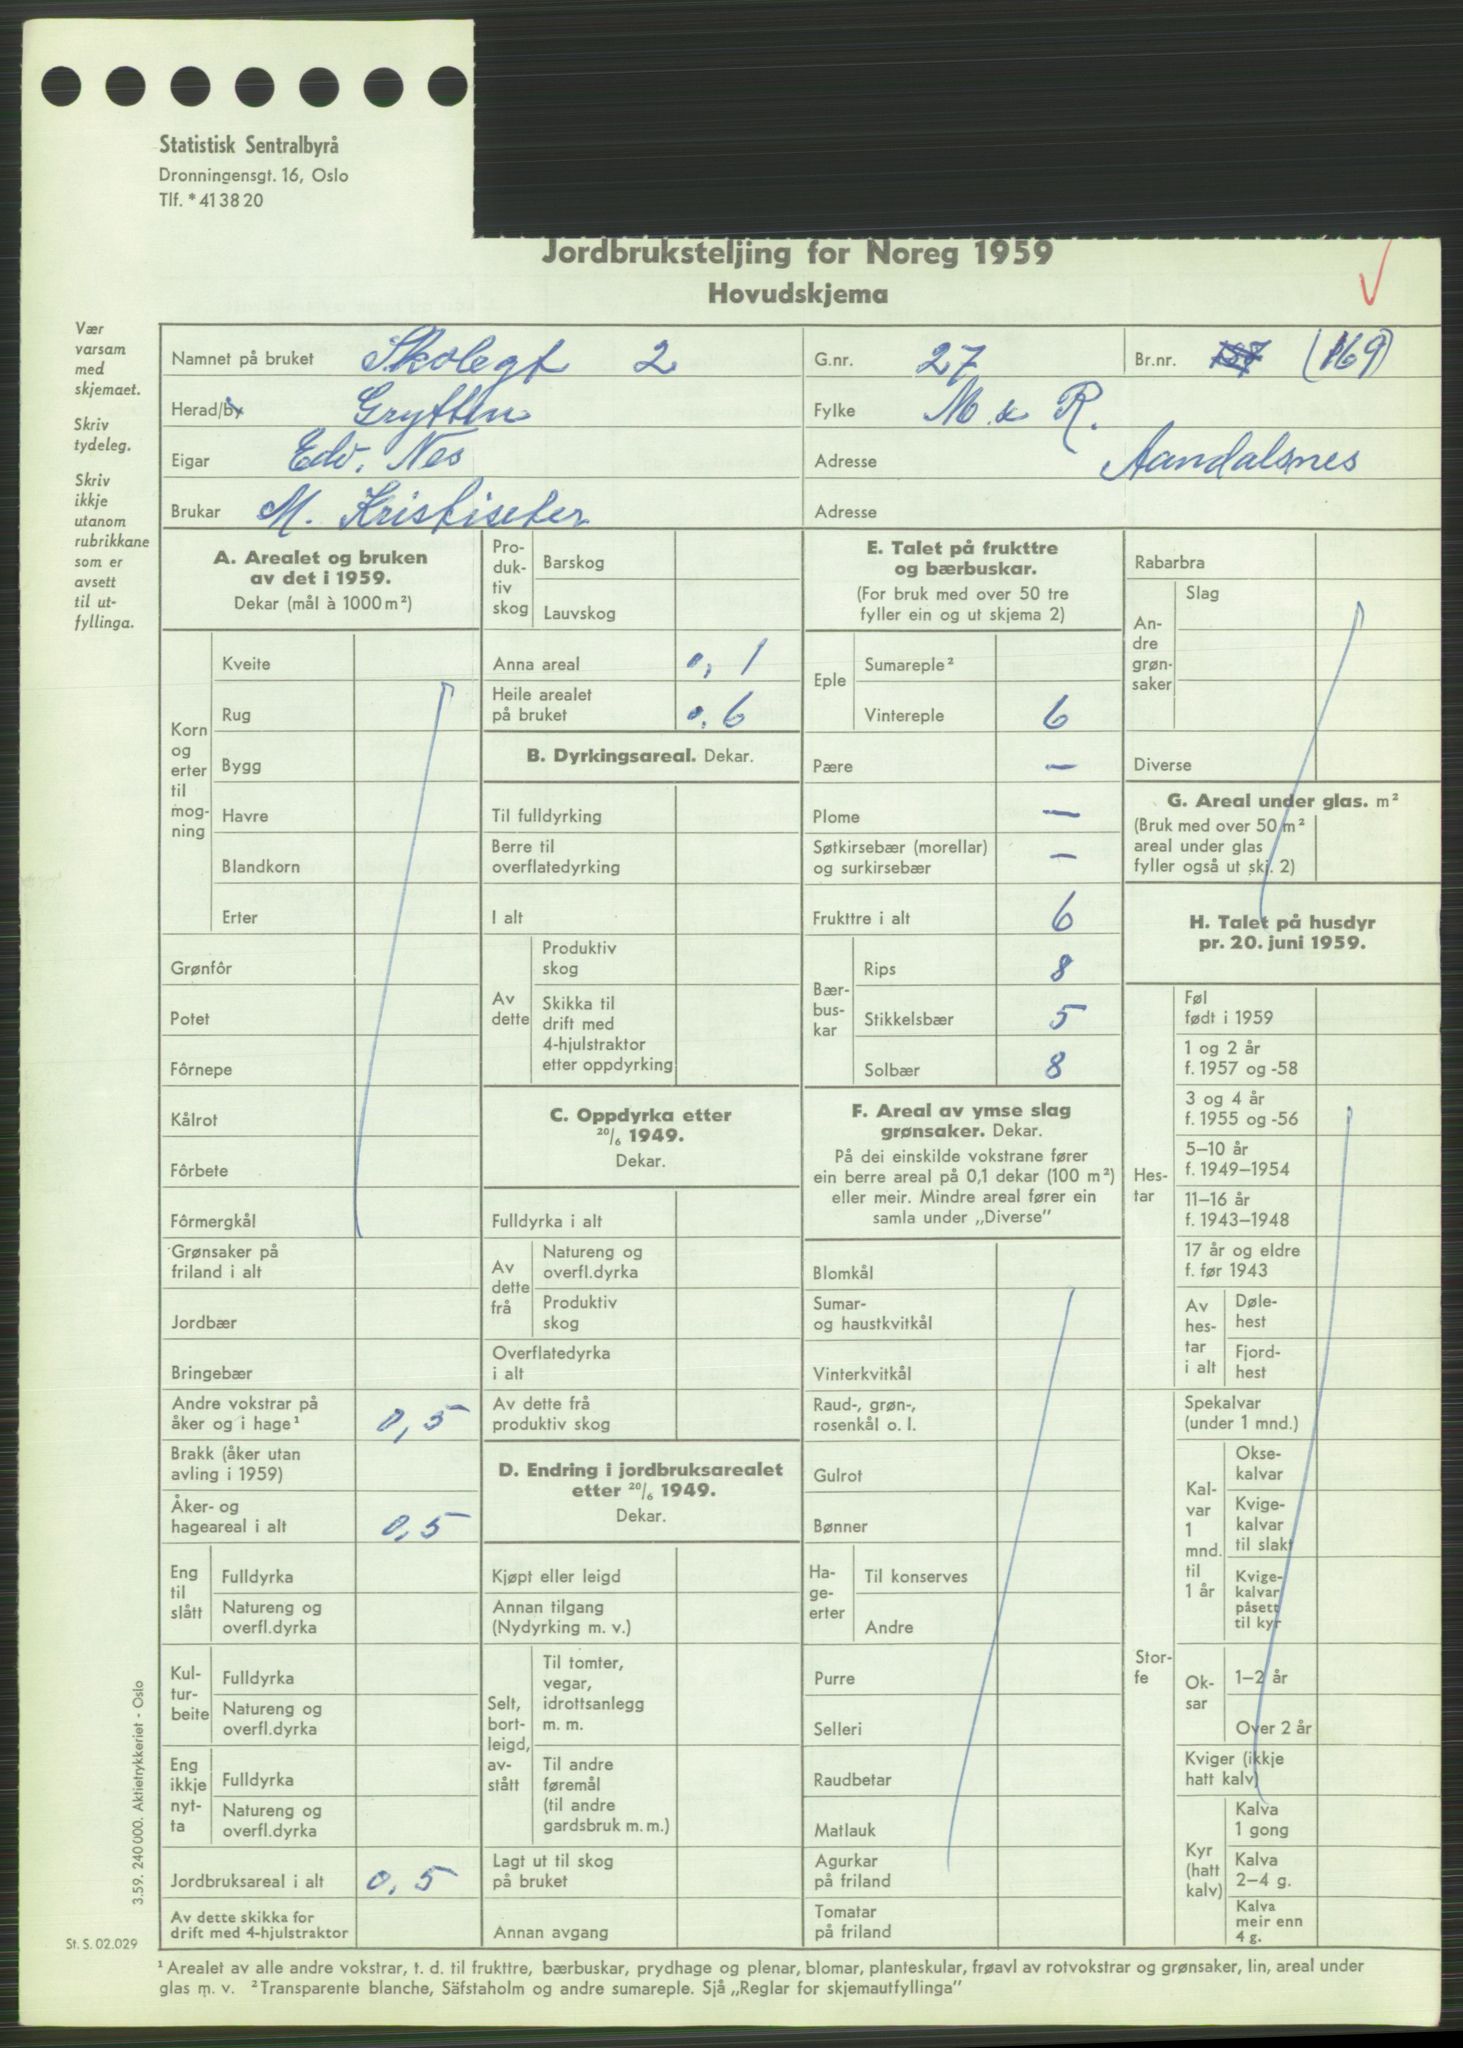 Statistisk Sentralbyrå
Dronningensgt. 16, Oslo
Tlf. * 41 38 20
Jordbruksteljing for Noreg 1959
Hovudskjema
Vær
varsam
med
skjemaet.
Skriv
tydeleg.
Skriv
ikkje
utanom
rubrikkane
som er
avsett
til ut-
fyllinga.
Namnet på bruket Skolegt 2 G.nr. 27 Br.nr. (169)
Herad/by Grytten Fylke M & R.
Eigar Edv. Nes Adresse Aandalsnes
Brukar M. Kristiseter Adresse
A. Arealet og bruken
av det i 1959.
Dekar (mål à 1000 m²)
Korn
og
erter
til
mog-
ning
Kveite
Rug
Bygg
Havre
Blandkorn
Erter
Grønfôr
Potet
Fôrnepe
Kålrot
Fôrbete
Fôrmergkål
Grønsaker på
friland i alt
Jordbær
Bringebær
Andre vokstrar på
åker og i hage¹ 0,5
Brakk (åker utan
avling i 1959)
Åker- og
hageareal i alt 0,5
Eng
til
slått
Fulldyrka
Natureng og
overfl.dyrka
Kul-
tur-
beite
Fulldyrka
Natureng og
overfl.dyrka
Eng
ikkje
nyt-
ta
Fulldyrka
Natureng og
overfl.dyrka
Jordbruksareal i alt 0,5
Av dette skikka for
drift med 4-hjulstraktor
Pro-
duk-
tiv
skog
Barskog
Lauvskog
Anna areal 0,1
Heile arealet
på bruket 0,6
B. Dyrkingsareal. Dekar.
Til fulldyrking
Berre til
overflatedyrking
I alt
Av
dette
Produktiv
skog
Skikka til
drift med
4-hjulstraktor
etter oppdyrking
C. Oppdyrka etter
20/6 1949.
Dekar.
Fulldyrka i alt
Av
dette
frå
Natureng og
overfl.dyrka
Produktiv
skog
Overflatedyrka
i alt
Av dette frå
produktiv skog
D. Endring i jordbruksarealet
etter 20/6 1949.
Dekar.
Kjøpt eller leigd
Annan tilgang
(Nydyrking m. v.)
Selt,
bort-
leigd,
av-
stått
Til tomter,
vegar,
idrottsanlegg
m. m.
Til andre
føremål
(til andre
gardsbruk m. m.)
Lagt ut til skog
på bruket
Annan avgang
E. Talet på frukttre
og bærbuskar.
(For bruk med over 50 tre
fyller ein og ut skjema 2)
Eple
Sumareple²
Vintereple 6
Pære —
Plome —
Søtkirsebær (morellar)
og surkirsebær —
Frukttre i alt 6
Bær-
bus-
kar
Rips 8
Stikkelsbær 5
Solbær 8
F. Areal av ymse slag
grønsaker. Dekar.
På dei einskilde vokstrane fører
ein berre areal på 0,1 dekar (100 m²)
eller meir. Mindre areal fører ein
samla under „Diverse”
Blomkål
Sumar-
og haustkvitkål
Vinterkvitkål
Raud-, grøn-,
rosenkål o. l.
Gulrot
Bønner
Ha-
ge-
erter
Til konserves
Andre
Purre
Selleri
Raudbetar
Matlauk
Agurkar
på friland
Tomatar
på friland
Rabarbra
An-
dre
grøn-
saker
Slag
Diverse
G. Areal under glas. m²
(Bruk med over 50 m²
areal under glas
fyller også ut skj. 2)
H. Talet på husdyr
pr. 20. juni 1959.
Hes-
tar
Føl
født i 1959
1 og 2 år
f. 1957 og -58
3 og 4 år
f. 1955 og -56
5–10 år
f. 1949–1954
11–16 år
f. 1943–1948
17 år og eldre
f. før 1943
Av
hes-
tar
i alt
Døle-
hest
Fjord-
hest
Stor-
fe
Spekalvar
(under 1 mnd.)
Kal-
var
1
mnd.
til
1 år
Okse-
kalvar
Kvige-
kalvar
til slakt
Kvige-
kalvar
påsett
til kyr
Ok-
sar
1–2 år
Over 2 år
Kviger (ikkje
hatt kalv)
Kyr
(hatt
kalv)
Kalva
1 gong
Kalva
2–4 g.
Kalva
meir enn
4 g.
3.59. 240 000. Aktietrykkeriet - Oslo
St. S. 02.029
¹ Arealet av alle andre vokstrar, t. d. til frukttre, bærbuskar, prydhage og plenar, blomar, planteskular, frøavl av rotvokstrar og grønsaker, lin, areal under
glas m. v. ² Transparente blanche, Säfstaholm og andre sumareple. Sjå „Reglar for skjemautfyllinga”